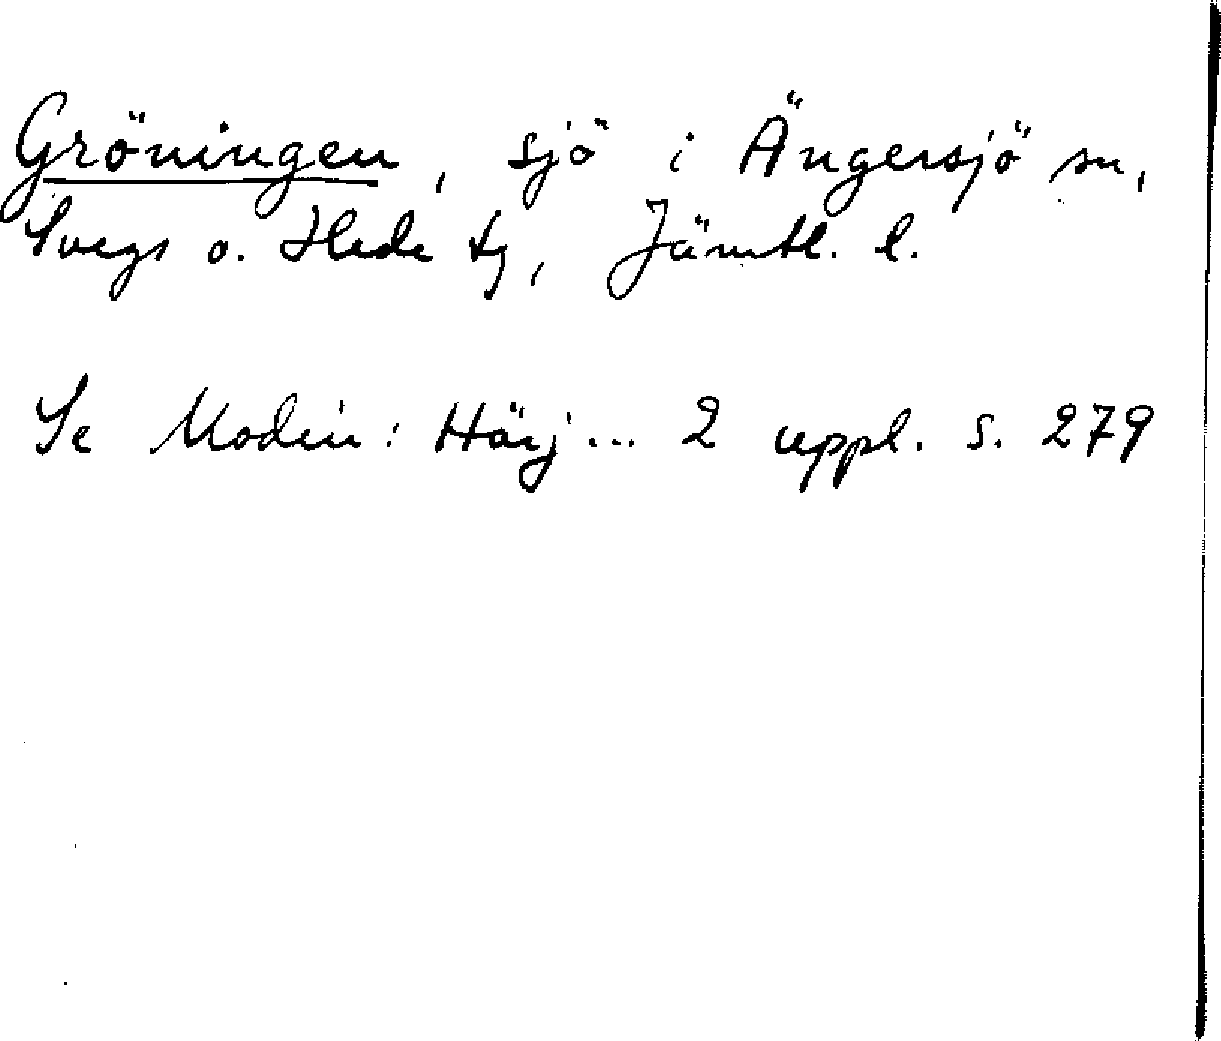 Gröningen, sjö i Ängersjö sn,
Svegs o. Hede tg, Jämtl. l.
Se Modin: Härj... 2 uppl. s. 279